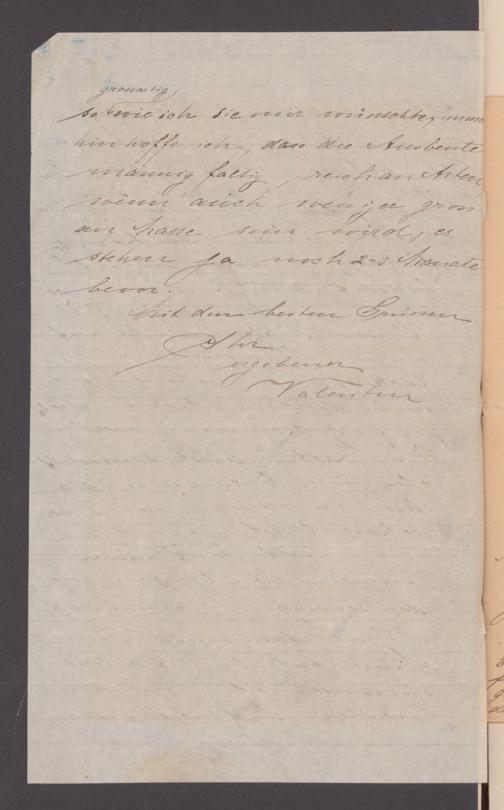 so wie ich sie mir wünschte, immer
hin hoffe ich, dass die Ausbeute
mannigfaltig, reich an Arten,
wenn auch weniger gross
an Masse sein wird, es
stehen ja noch 2-3 Monate
bevor.
Mit den besten Grüssen
Ihr
ergebener
Valentin